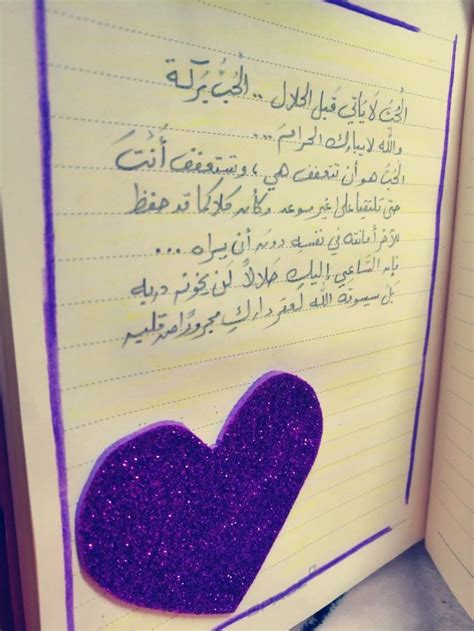 الْحُبُّ لَا يَأتي قَبل الحَلال .. الْحُبُّ بَرَكة
والله لا يبارك الحرامَ ...
الحُبّ هو أن تتعفف هي ، وتستعفف أَنْتَ
حتى تلتقيا على غير موعد وكأن كلاكما قد حفظ
للآخر أمانته في نفسهِ دونَ أن يراه ...
فإن السَّاعي إليكِ حَلالاً لن يخونه دربه
بَل سيسوقه الله لعقر دارِكِ مجرورًا من قلبه